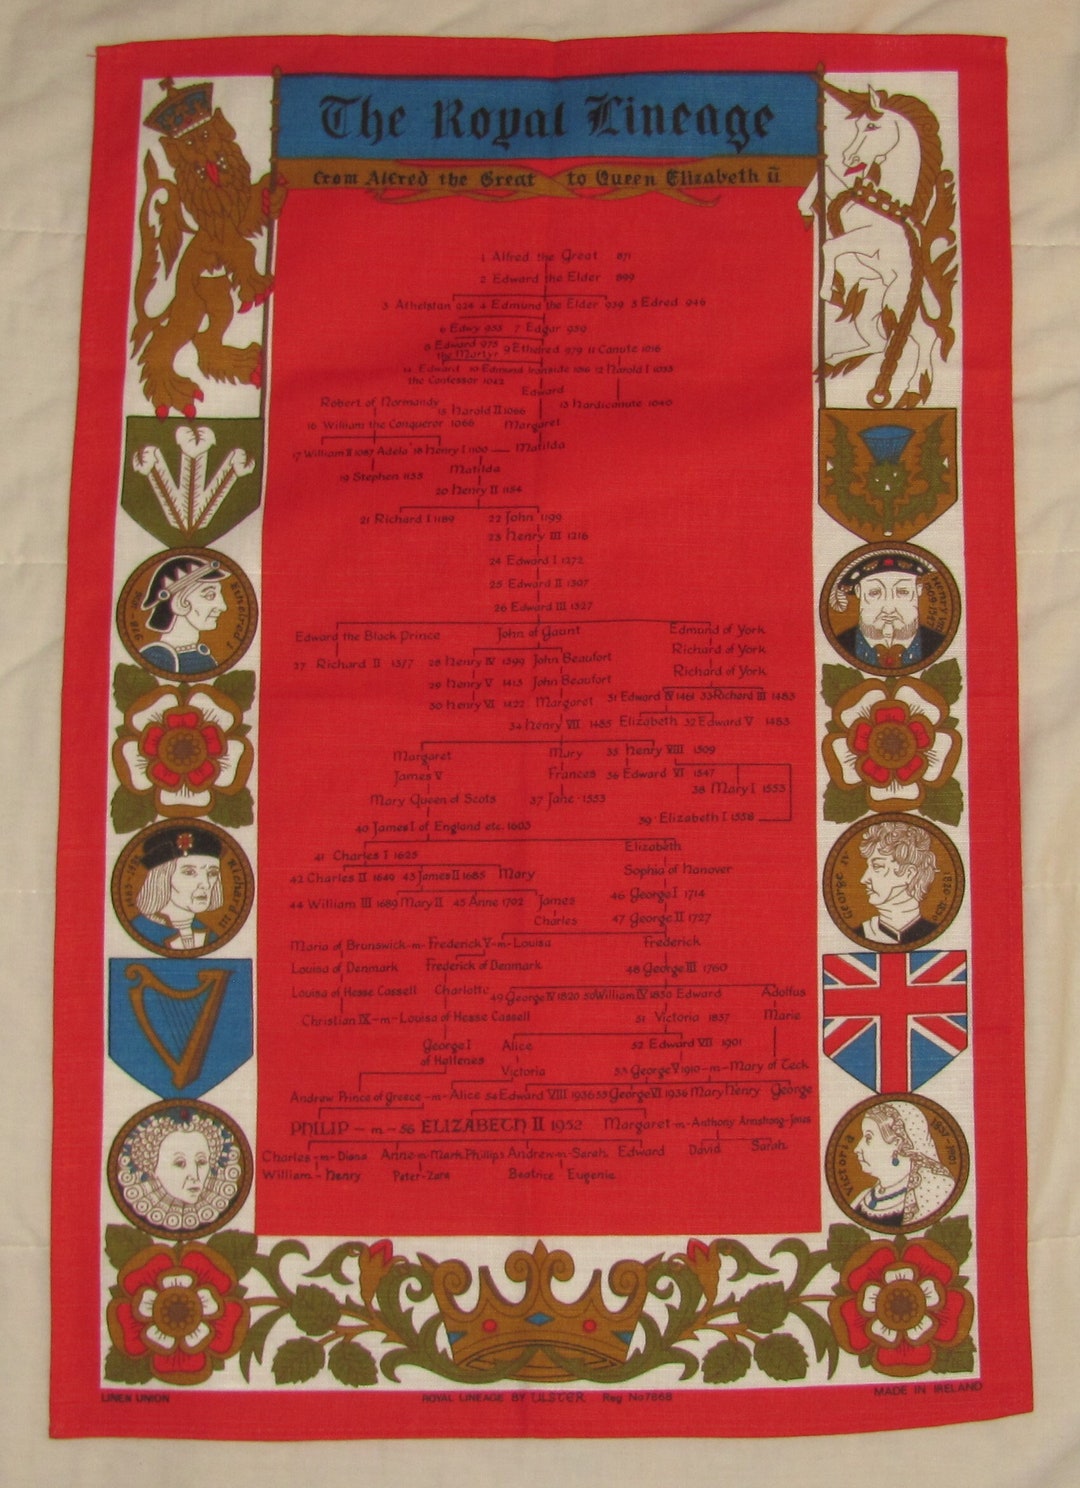 The Royal Lineage
from Alfred the Great to Queen Elizabeth II
1 Alfred the Great 871
2 Edward the Elder 899
3 Athelstan 924 4 Edmund the Elder 939 5 Edred 946
6 Edwy 955 7 Edgar 959
8 Edward 975 the Martyr 9 Ethelred 979 11 Canute 1016
14 Edward the Confessor 1042 10 Edmund Ironside 1016 12 Harold I 1035
Edward
Robert of Normandy 15 Harold II 1066 13 Hardicanute 1040
16 William the Conqueror 1066 Margaret
17 William II 1087 Adela 18 Henry I 1100 Matilda
Matilda
19 Stephen 1135
20 Henry II 1154
21 Richard I 1189 22 John 1199
23 Henry III 1216
24 Edward I 1272
25 Edward II 1307
26 Edward III 1327
Edward the Black Prince John of Gaunt Edmund of York
Richard of York
27 Richard II 1377 28 Henry IV 1399 John Beaufort
Richard of York
29 Henry V 1413 John Beaufort
30 Henry VI 1422 Margaret 31 Edward IV 1461 33 Richard III 1483
34 Henry VII 1485 Elizabeth 32 Edward V 1483
Margaret Mary 35 Henry VIII 1509
James V Frances 36 Edward VI 1547
38 Mary I 1553
Mary Queen of Scots 37 Jane - 1553
39 Elizabeth I 1558
40 James I of England etc. 1603
41 Charles I 1625 Elizabeth
42 Charles II 1649 43 James II 1685 Mary Sophia of Hanover
44 William III 1689 Mary II 45 Anne 1702 James 46 George I 1714
Charles 47 George II 1727
Maria of Brunswick-m-Frederick V-m-Louisa Frederick
Louisa of Denmark Frederick of Denmark 48 George III 1760
Louisa of Hesse Cassell Charlotte 49 George IV 1820 50 William IV 1830 Edward Adolfus
Christian IX-m-Louisa of Hesse Cassell 51 Victoria 1837 Marie
George I of Hellenes Alice 52 Edward VII 1901
Victoria 53 George V 1910-m-Mary of Teck
Andrew Prince of Greece-m-Alice 54 Edward VIII 1936 55 George VI 1936 Mary Henry George
PHILIP-m-56 ELIZABETH II 1952 Margaret-m-Anthony Armstrong-Jones
Charles-m-Diana Anne-m-Mark Philips Andrew-m-Sarah Edward David Sarah
William-Henry Peter-Zara Beatrice Eugenie
Ethelred I
Henry VIII 1509-1547
Richard III 1483-1485
George IV 1820-1830
Victoria 1837-1901
LINEN UNION
ROYAL LINEAGE BY ULSTER Reg No 7868
MADE IN IRELAND